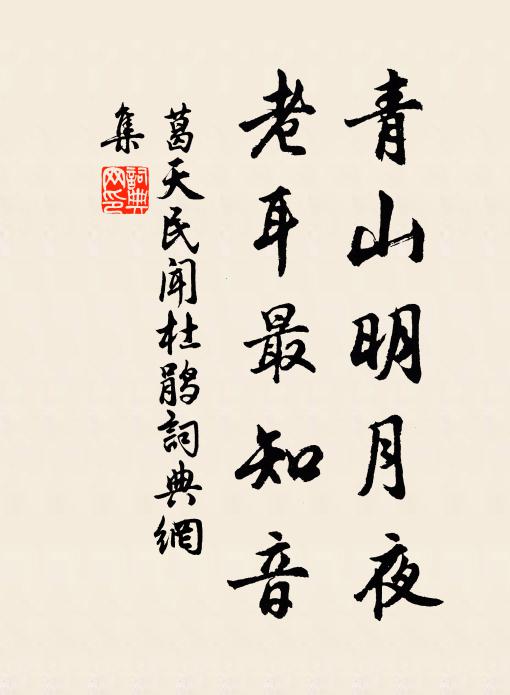 青山明月夜
老耳最知音
葛天民闻杜鹃詞典網
集
詞典网印